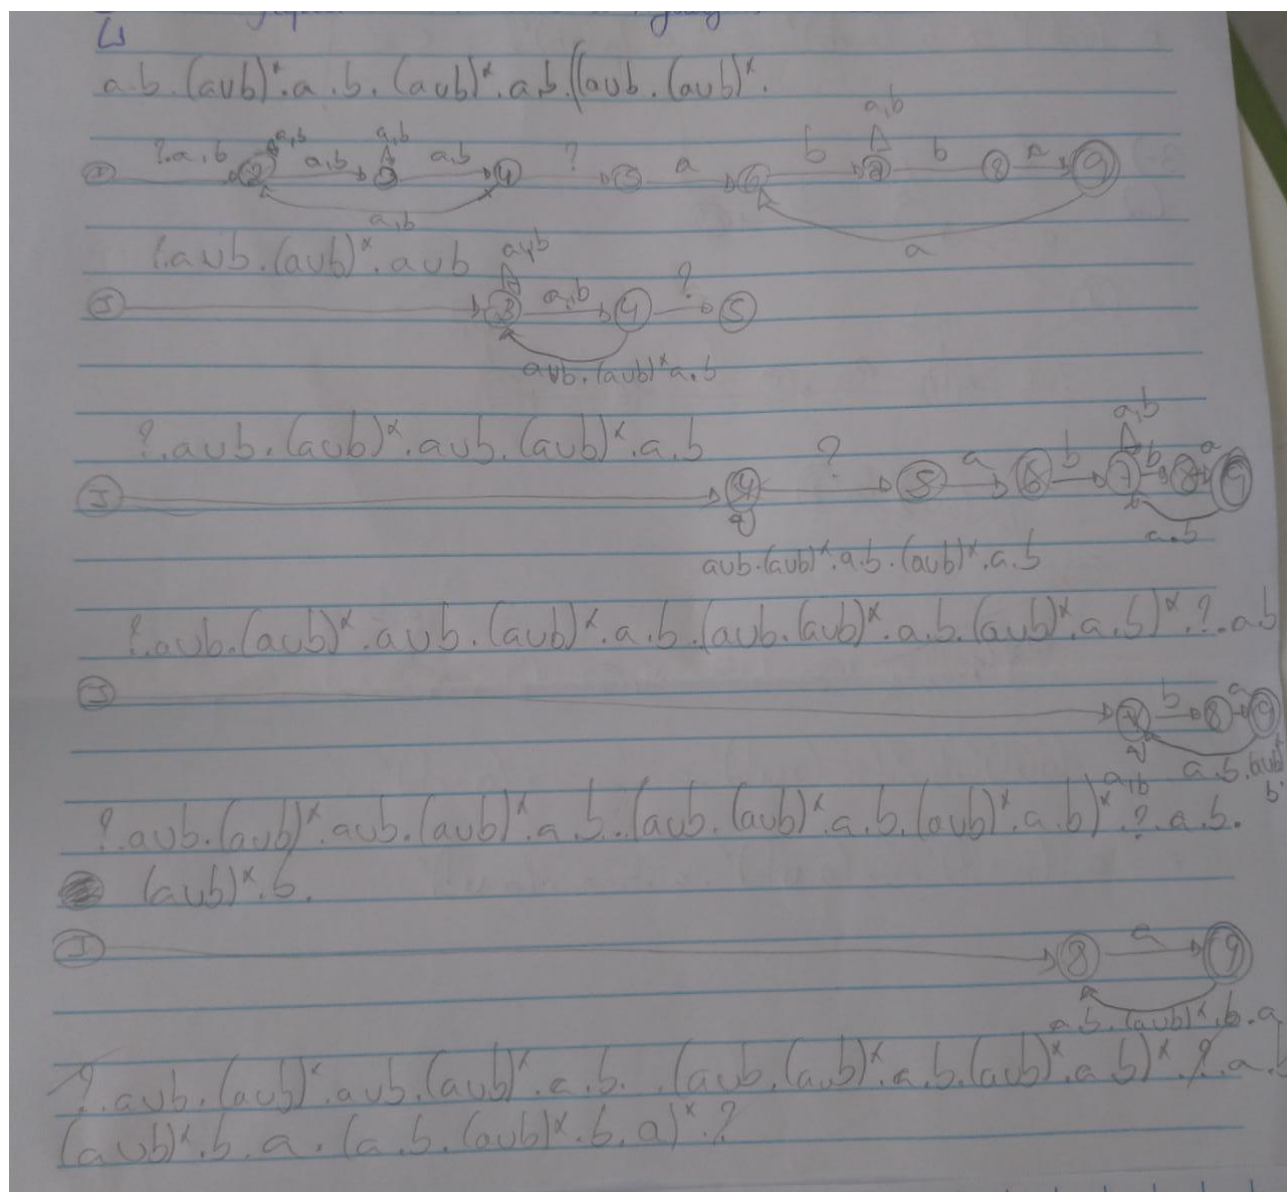 a.b.(a∪b)*.a.b.(a∪b)*.a.b.((a∪b.(a∪b)*.
a,b a,b a,b
?.a,b 2 a,b 3 a,b 4 ? 5 a 6 b 7 b 8 a 9
a,b a
?.a∪b.(a∪b)*.a∪b a∪b
I 3 a,b 4 ? 5
a∪b.(a∪b)*a.b
?.a∪b.(a∪b)*.a∪b.(a∪b)*.a.b a,b
I 4 ? 5 a 6 b 7 b 8 a 9
a.b
a∪b.(a∪b)*.a.b.(a∪b)*.a.b
?.a∪b.(a∪b)*.a∪b.(a∪b)*.a.b.(a∪b.(a∪b)*.a.b.(a∪b)*.a.b)*.?.a.b
I 7 b 8 a 9
a,b a.b.(a∪b)*
b
?.a∪b.(a∪b)*.a∪b.(a∪b)*.a.b.(a∪b.(a∪b)*.a.b.(a∪b)*.a.b)*.?.a.b.
(a∪b)*.b.
I 8 a 9
a.b.(a∪b)*.b.a
?.a∪b.(a∪b)*.a∪b.(a∪b)*.a.b..(a∪b.(a∪b)*.a.b.(a∪b)*.a.b)*.?.a.b
(a∪b)*.b.a.(a.b.(a∪b)*.b.a)*.?